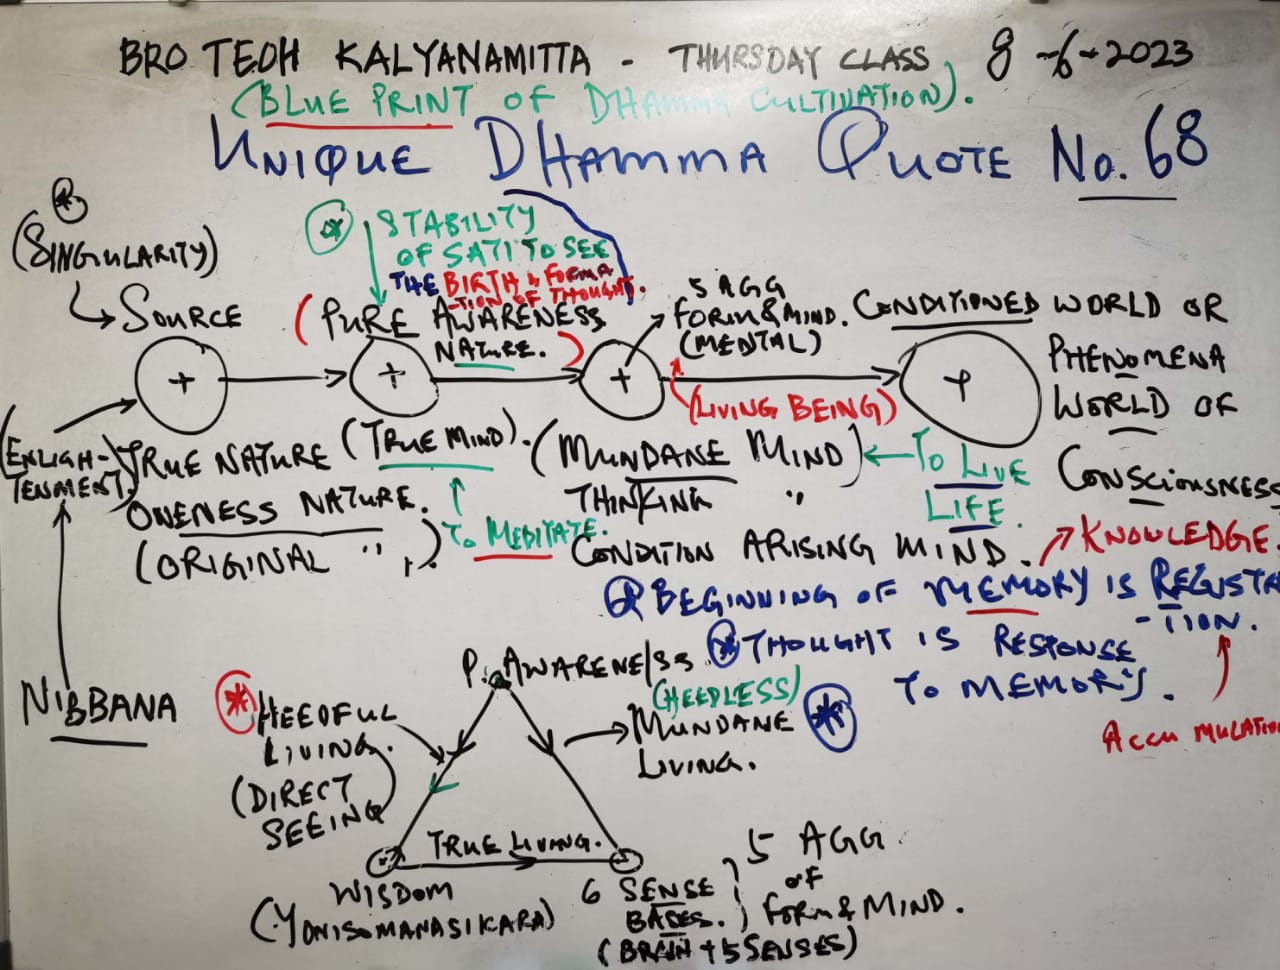 BRO TEOH KALYANAMITTA - THURSDAY CLASS 8-6-2023
(BLUE PRINT OF DHAMMA CULTIVATION).
UNIQUE DHAMMA QUOTE No. 68
(SINGULARITY)
SOURCE
STABILITY
OF SATI TO SEE
THE BIRTH & FORMA
-TION OF THOUGHT.
(PURE AWARENESS
NATURE.)
5 AGG
FORM & MIND.
(MENTAL)
(LIVING BEING)
CONDITIONED WORLD OR
PHENOMENA
WORLD OF
CONSCIOUSNESS
+ + + +
(ENLIGH-
TENMENT)
TRUE NATURE
ONENESS NATURE.
(ORIGINAL " ")
(TRUE MIND).
TO MEDITATE.
(MUNDANE MIND)
THINKING "
CONDITION ARISING MIND.
TO LIVE
LIFE.
KNOWLEDGE.
BEGINNING OF MEMORY IS REGISTRA
-TION.
THOUGHT IS RESPONSE
TO MEMORY.
ACCUMULATION
NIBBANA
P. AWARENESS
HEEDFUL
LIVING.
(DIRECT
SEEING)
(HEEDLESS)
MUNDANE
LIVING.
TRUE LIVING.
WISDOM
(YONISOMANASIKARA)
6 SENSE
BASES.
(BRAIN + 5 SENSES)
5 AGG.
OF
FORM & MIND.